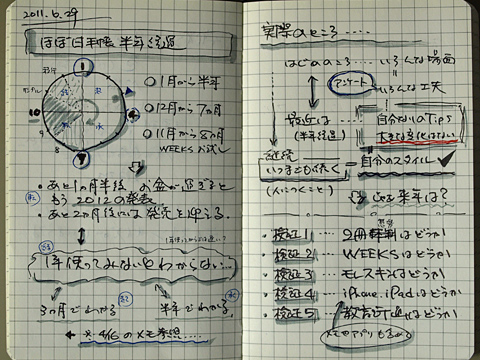 2011.6.29
ほぼ日手帳 半年経過
1
10
4
7
9
8
○1月から 半年
○12月から 7ヵ月
○11月から 8ヵ月
WEEKS お試し
・あと1ヵ月半後 お盆が過ぎると
もう2012の発表
・あと2ヵ月後には発売を迎える.
1年使ってみないとわからない...
3ヵ月でわかる
半年でわかる
← ※ 4/6のメモ参照....
実際のところ....
はじめのころ .... いろんな場面
アンケート
いろんな工夫
最近は
(半年経過)
自分なりのTips
大きな変化はない
継続
いつまでも続く
(人につくこと)
自分のスタイル ✓
じゃあ来年は?
・検証1 2冊 はどうか
・検証2 WEEKSはどうか
・検証3 モレスキンはどうか
・検証4 iPhone.iPadはどうか
・検証5 はどうか
メモアプリも含める